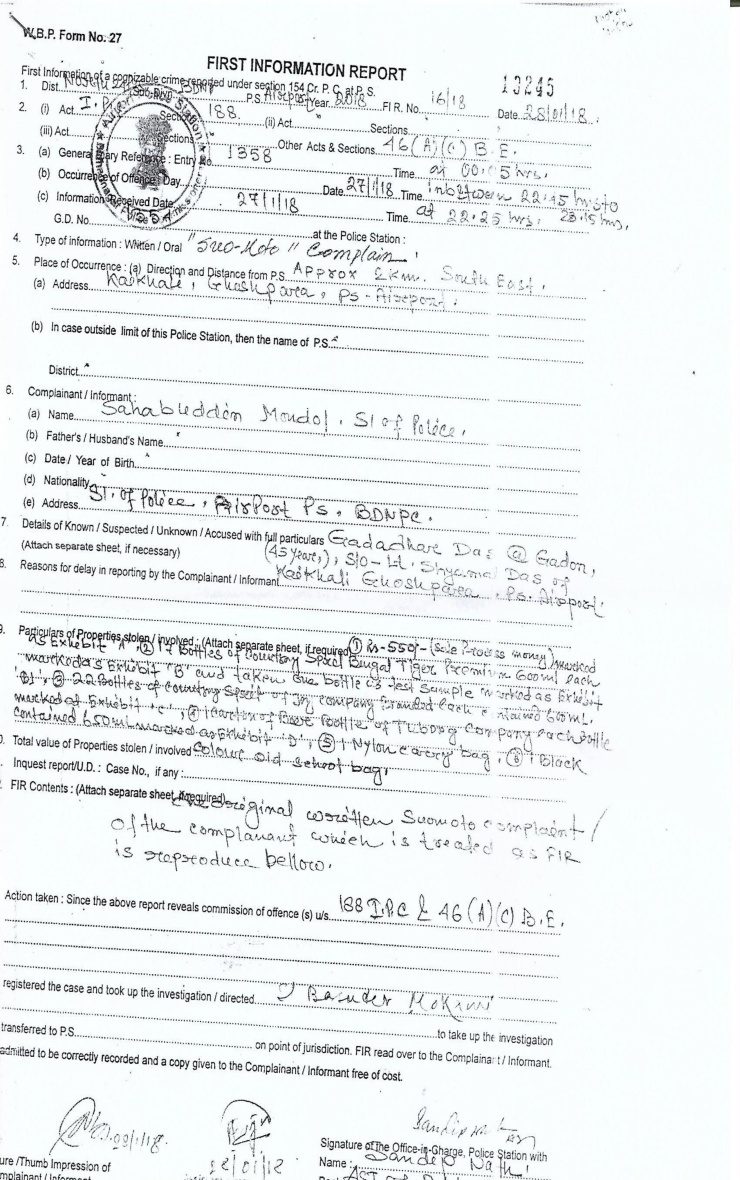 W.B.P. Form No. 27
FIRST INFORMATION REPORT
13245
First Information of a cognizable crime reported under section 154 Cr. P. C. at P. S.
1. Dist. P.S. Airport Year 2018 FIR. No. 16/18 Date 28/01/18.
2. (i) Act I.P. Sections 188. (ii) Act Sections
(iii) Act Sections Other Acts & Sections 46(A)(C) B.E.
3. (a) General Diary Reference : Entry No. 1358 Time at 00:05 hrs.
(b) Occurrence of Offence : Day Date 27/1/18 Time inbetween 22.15 hrs to 23.15 hrs,
(c) Information Received Date 27/1/18 Time at 22.25 hrs.
G.D. No. at the Police Station :
4. Type of information : Written / Oral "Suo-Moto" Complain
5. Place of Occurrence : (a) Direction and Distance from P.S. Approx 2 km. South East.
(a) Address Kaikhali, Ghoshpara, Ps - Airport.
(b) In case outside limit of this Police Station, then the name of P.S.
District
6. Complainant / Informant :
(a) Name Sahabuddin Mondol, SI of Police,
(b) Father's / Husband's Name
(c) Date / Year of Birth
(d) Nationality
(e) Address SI. of Police, Airport Ps, BDNPC.
7. Details of Known / Suspected / Unknown / Accused with full particulars Gadadhare Das @ Gadon,
(Attach separate sheet, if necessary) (45 years), S/O- Lt. Shyamal Das of
8. Reasons for delay in reporting by the Complainant / Informant Kaikhali Ghoshpara, Ps. Airport.
9. Particulars of Properties stolen / involved : (Attach separate sheet, if required) ① Rs-550/- (Sale Process money) marked
as Exhibit 'A', ② Bottles of Country Spirit Bengal Tiger Premium 600ml each
marked as Exhibit "B" and taken one bottle as test sample marked as Exhibit
③ 22 Bottles of country Spirit of company branded each contained 600ml.
marked as Exhibit 'C', ④ 1 carton of Beer Bottle of Tuborg Company each bottle
contained 650ml marked as Exhibit 'D', ⑤ 1 Nylon carry bag, ⑥ 1 Black
Total value of Properties stolen / involved Colour old school bag,
Inquest report/U.D. : Case No., if any :
FIR Contents : (Attach separate sheet, if required) original written Suomoto complaint
of the complanant which is treated as FIR
is reproduce bellow.
Action taken : Since the above report reveals commission of offence (s) u/s. 188 I.P.C & 46(A)(C) B.E.
registered the case and took up the investigation / directed
to take up the investigation
transferred to P.S. on point of jurisdiction. FIR read over to the Complainant / Informant.
admitted to be correctly recorded and a copy given to the Complainant / Informant free of cost.
Signature of The Office-in-Gharge, Police Station with
ure /Thumb Impression of Name : Sandip Nath
mplainant / Informant